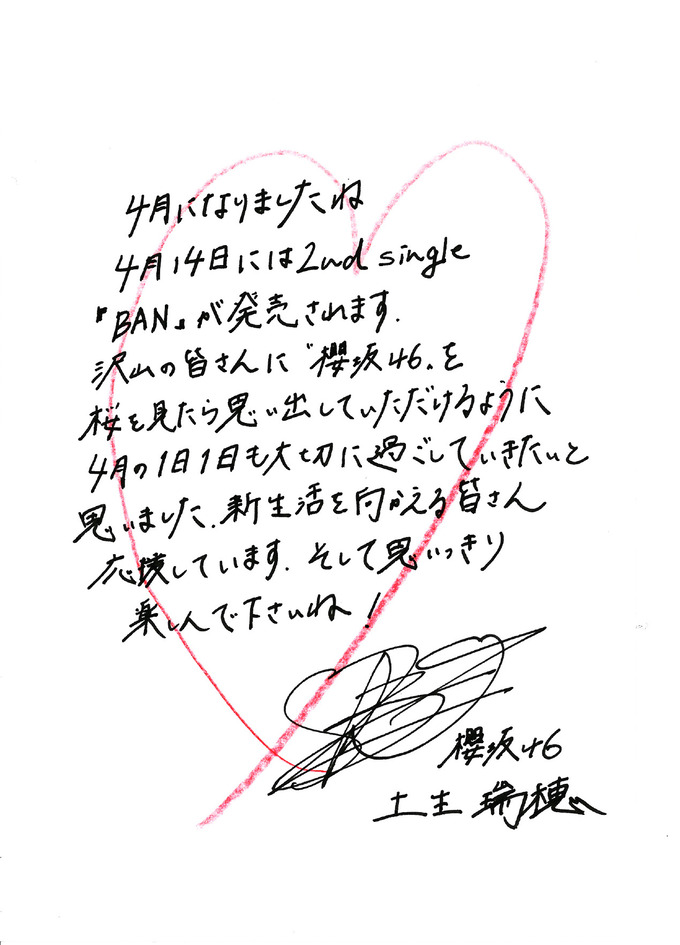 4月になりましたね
4月14日には2nd single
『BAN』が発売されます.
沢山の皆さんに“櫻坂46„を
桜を見たら思い出していただけるように
4月の1日1日も大切に過ごしていきたいと
思いました.新生活を向かえる皆さん
応援しています.そして思いっきり
楽しんで下さいね!
櫻坂46
土生 瑞穂